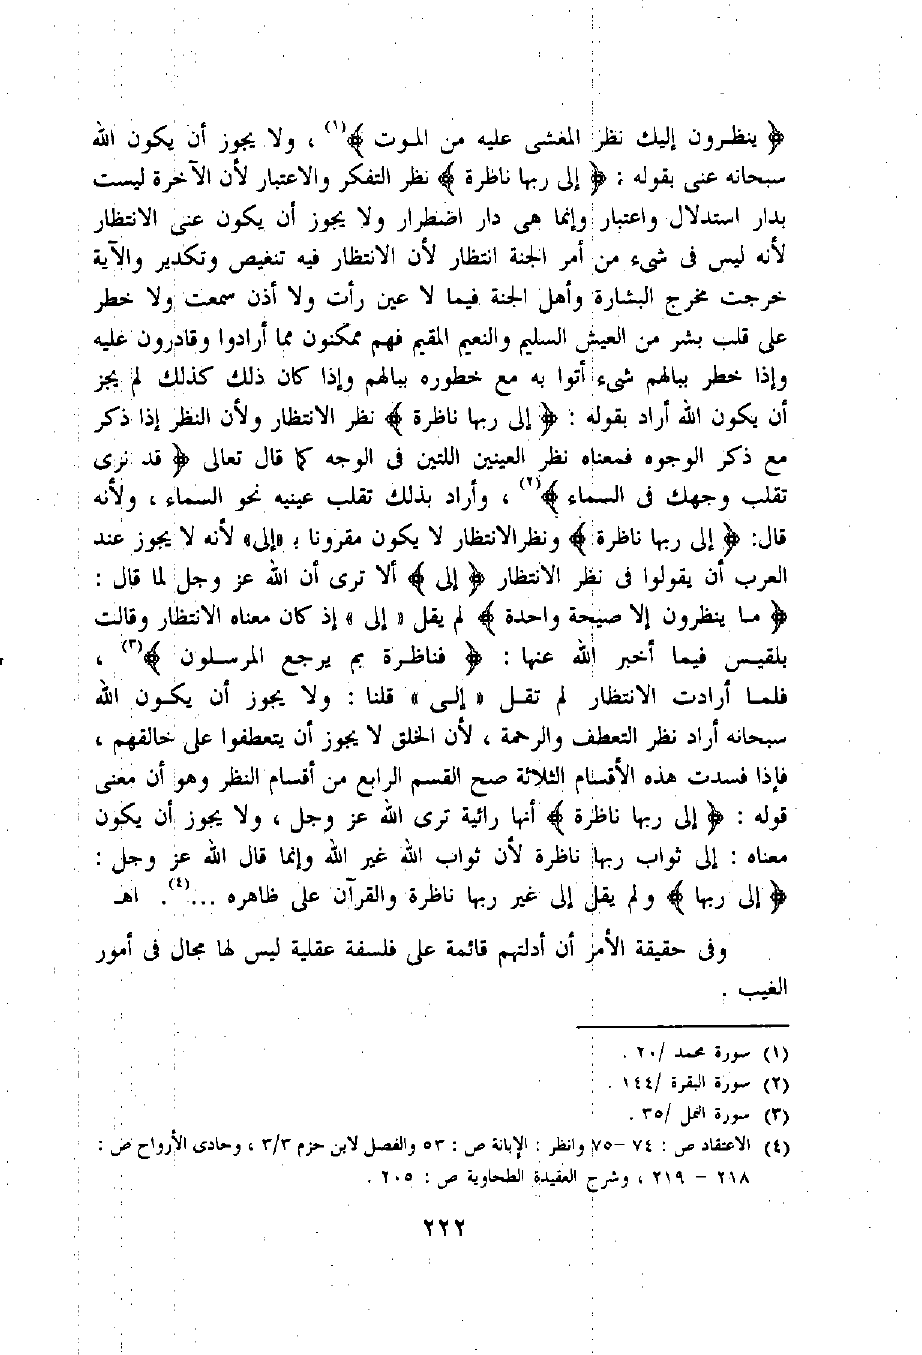 ﴿ ينظرون إليك نظر المغشى عليه من الموت ﴾(١) ، ولا يجوز أن يكون الله
سبحانه عنى بقوله : ﴿ إلى ربها ناظرة ﴾ نظر التفكر والاعتبار لأن الآخرة ليست
بدار استدلال واعتبار وإنما هى دار اضطرار ولا يجوز أن يكون عنى الانتظار
لأنه ليس فى شىء من أمر الجنة انتظار لأن الانتظار فيه تنغيص وتكدير والآية
خرجت مخرج البشارة وأهل الجنة فيما لا عين رأت ولا أذن سمعت ولا خطر
على قلب بشر من العيش السليم والنعيم المقيم فهم ممكنون مما أرادوا وقادرون عليه
وإذا خطر ببالهم شىء أتوا به مع خطوره ببالهم وإذا كان ذلك كذلك لم يجز
أن يكون الله أراد بقوله : ﴿ إلى ربها ناظرة ﴾ نظر الانتظار ولأن النظر إذا ذكر
مع ذكر الوجوه فمعناه نظر العينين اللتين فى الوجه كما قال تعالى ﴿ قد نرى
تقلب وجهك فى السماء ﴾(٢) ، وأراد بذلك تقلب عينيه نحو السماء ، ولأنه
قال: ﴿ إلى ربها ناظرة ﴾ ونظر الانتظار لا يكون مقرونا بـ «إلى» لأنه لا يجوز عند
العرب أن يقولوا فى نظر الانتظار ﴿ إلى ﴾ ألا ترى أن الله عز وجل لما قال :
﴿ ما ينظرون إلا صيحة واحدة ﴾ لم يقل « إلى » إذ كان معناه الانتظار وقالت
بلقيس فيما أخبر الله عنها : ﴿ فناظرة بم يرجع المرسلون ﴾(٣) ،
فلما أرادت الانتظار لم تقل « إلى » قلنا : ولا يجوز أن يكون الله
سبحانه أراد نظر التعطف والرحمة ، لأن الخلق لا يجوز أن يتعطفوا على خالقهم ،
فإذا فسدت هذه الأقسام الثلاثة صح القسم الرابع من أقسام النظر وهو أن معنى
قوله : ﴿ إلى ربها ناظرة ﴾ أنها رائية ترى الله عز وجل ، ولا يجوز أن يكون
معناه : إلى ثواب ربها ناظرة لأن ثواب الله غير الله وإنما قال الله عز وجل :
﴿ إلى ربها ﴾ ولم يقل إلى غير ربها ناظرة والقرآن على ظاهره ...(٤). اهـ
وفى حقيقة الأمر أن أدلتهم قائمة على فلسفة عقلية ليس لها مجال فى أمور
الغيب .
(١) سورة محمد /٢٠ .
(٢) سورة البقرة /١٤٤ .
(٣) سورة النمل /٣٥ .
(٤) الاعتقاد ص : ٧٤ –٧٥ وانظر : الإبانة ص : ٥٣ والفصل لابن حزم ٣/٣ ، وحادى الأرواح ص :
٢١٨ – ٢١٩ ، وشرح العقيدة الطحاوية ص : ٢٠٥ .
٢٢٢